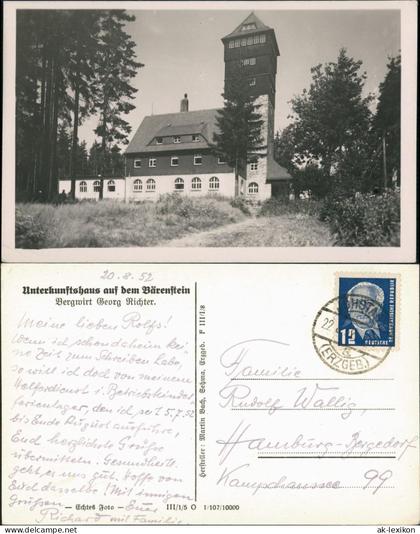 20.8.52
Unterkunftshaus auf dem Bärenstein
Bergwirt Georg Richter.
Meine lieben Rolfs!
Wenn ich schon daheim kei
ne Zeit zum Schreiben habe,
so will ich doch von meinem
Helferdienst i. Betriebskinder
ferienlager, den ich seit 5.7.52
bis Ende August ausführe,
Euch herzlichste Grüße
übermitteln. Gesundheitl.
geht es uns gut. Hoffe von
Euch dasselbe! Mit innigen
Grüßen Euer
Richard mit Familie
— Echtes Foto — III/1/5 O 1/107/10000
Hersteller: Martin Bach, Sehma, Erzgeb. F III/1/8
(ERZGEB.)
12
DEUTSCHE
Familie
Rudolf Wallig
Hamburg-Bergedorf
Kampchaussee 99
© ak-lexikon.com